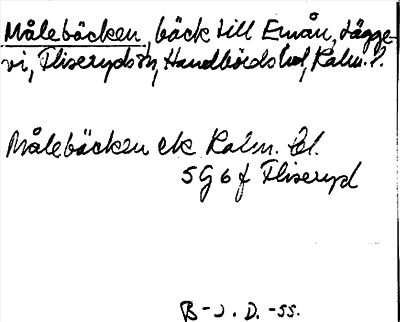 Målebäcken, bäck till Emån, Lägge-
vi, Fliseryds sn, Handbörds hd, Kalm. l.
Målebäcken ek Kalm. bl.
5G 6 f Fliseryd
B-J. D. -55.